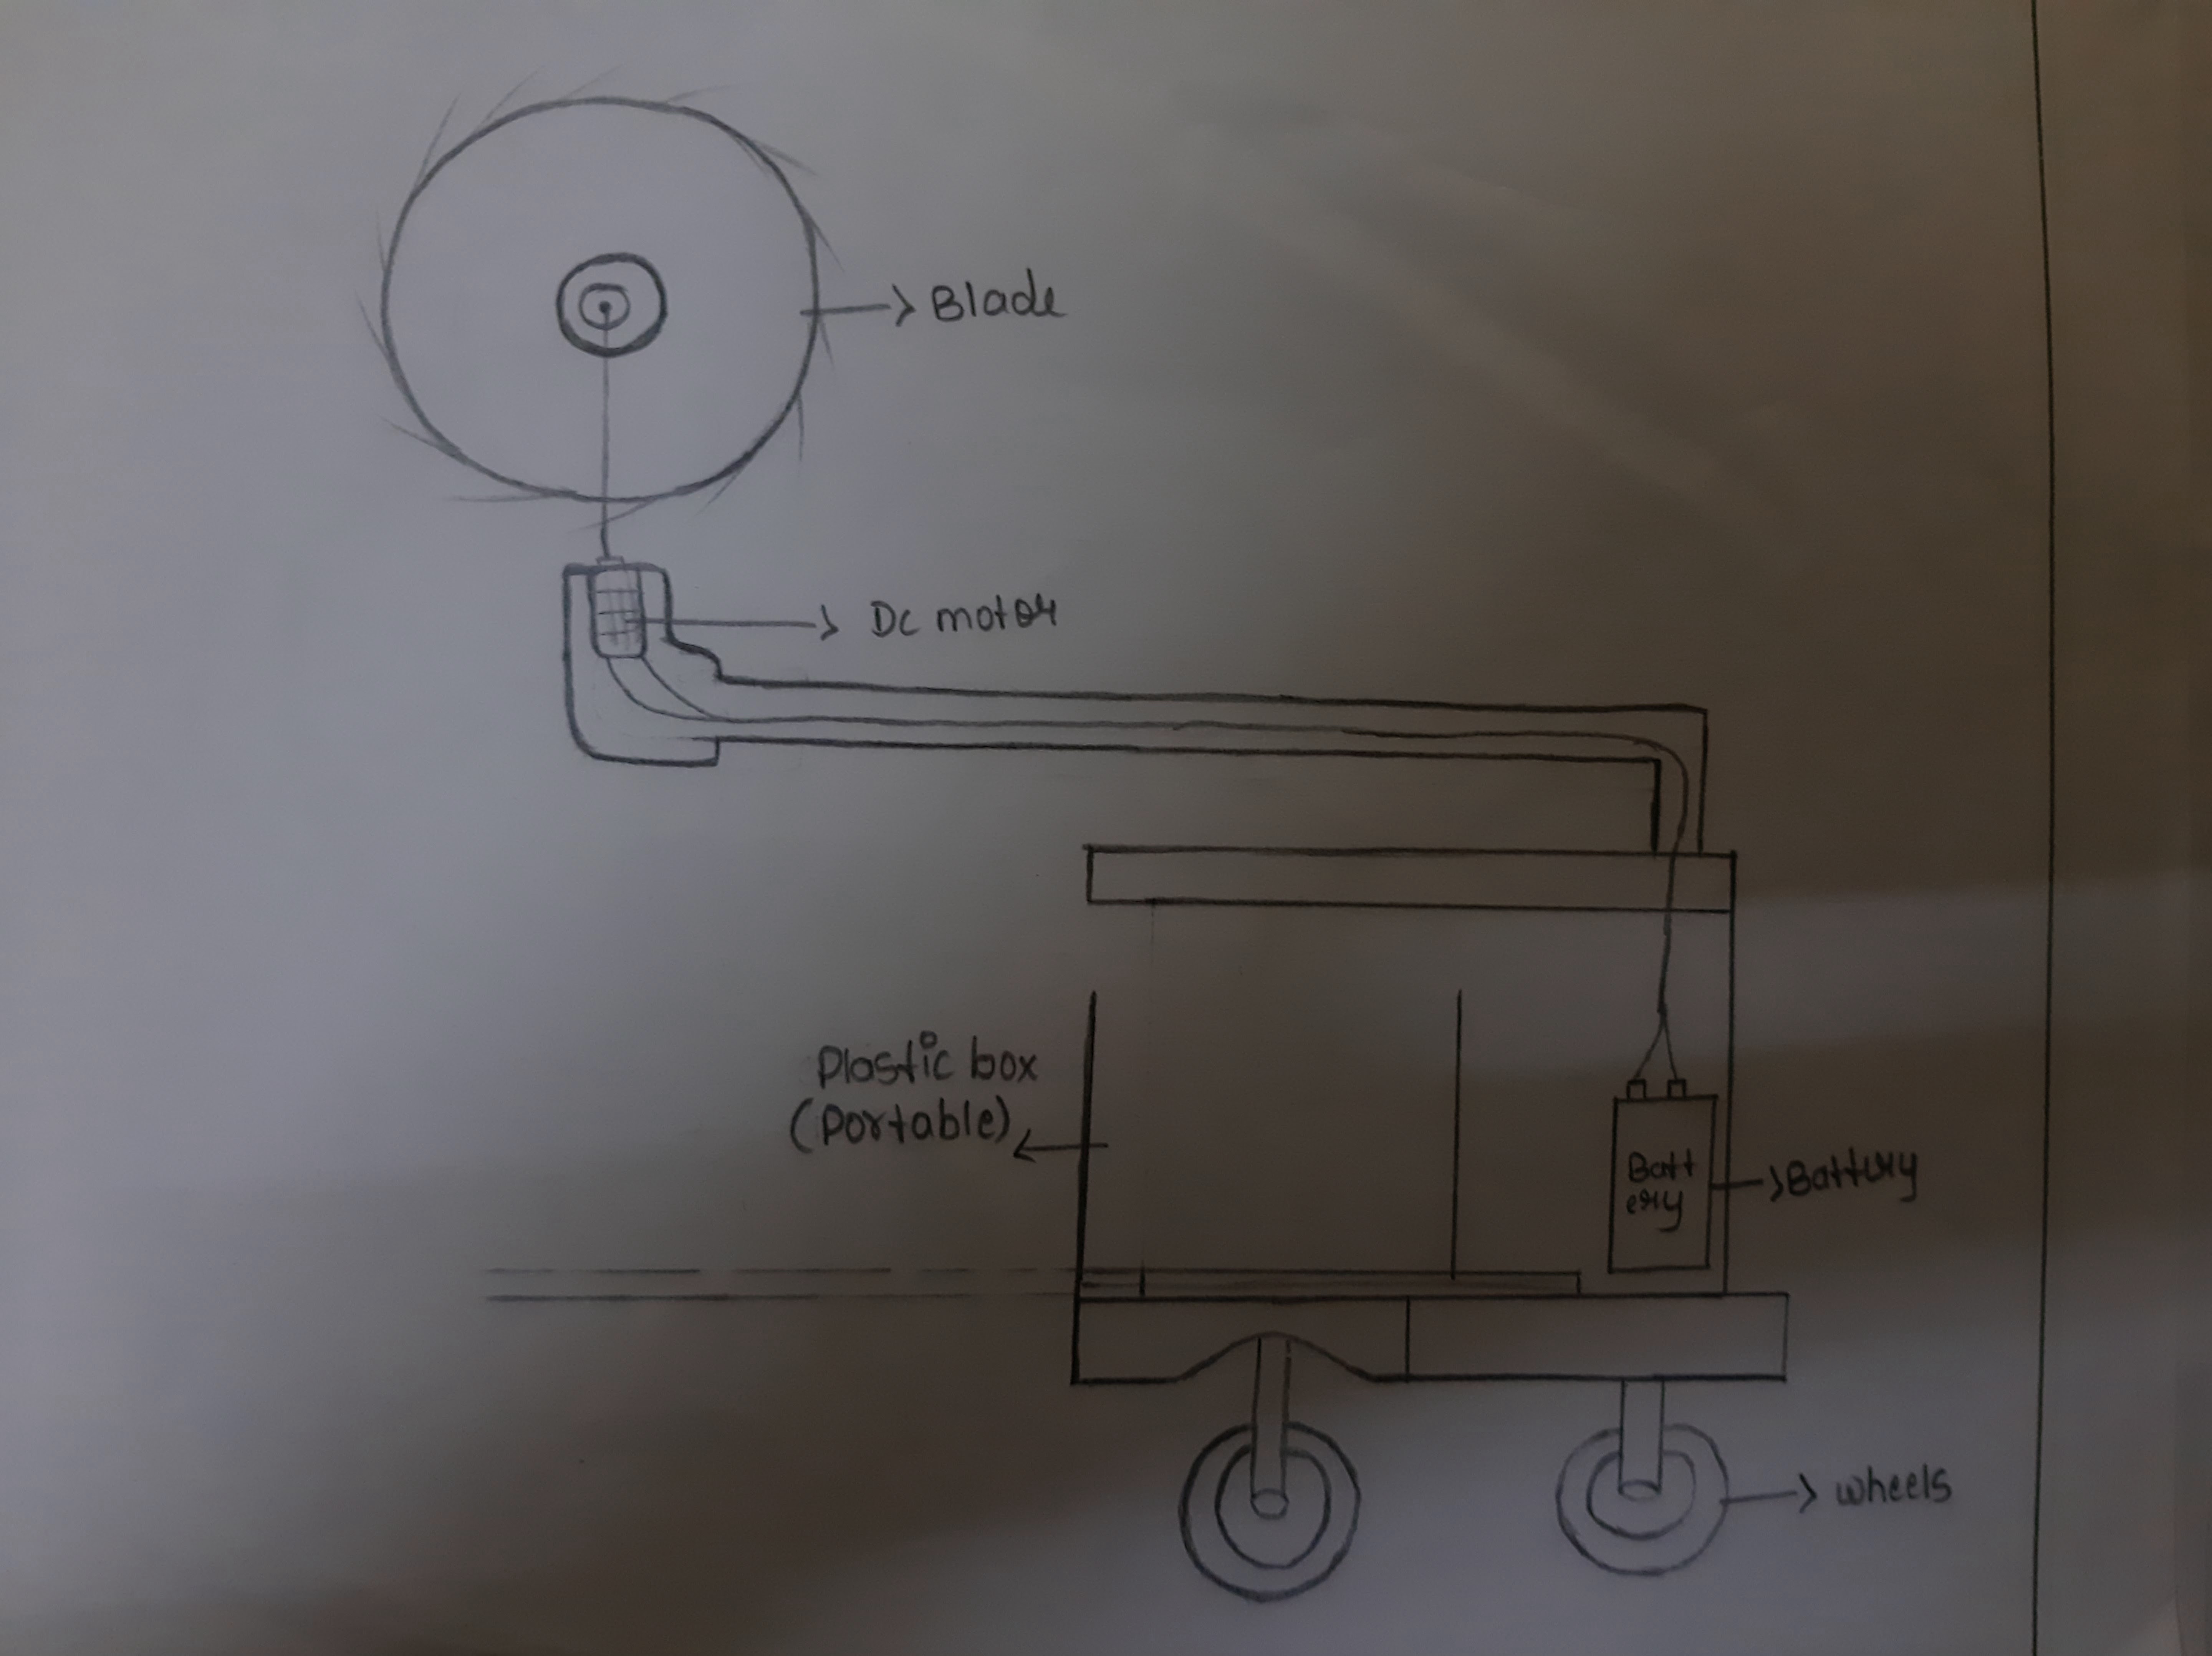 Blade
Dc motor
Plastic box
(Portable)
Batt
ery
Battery
wheels